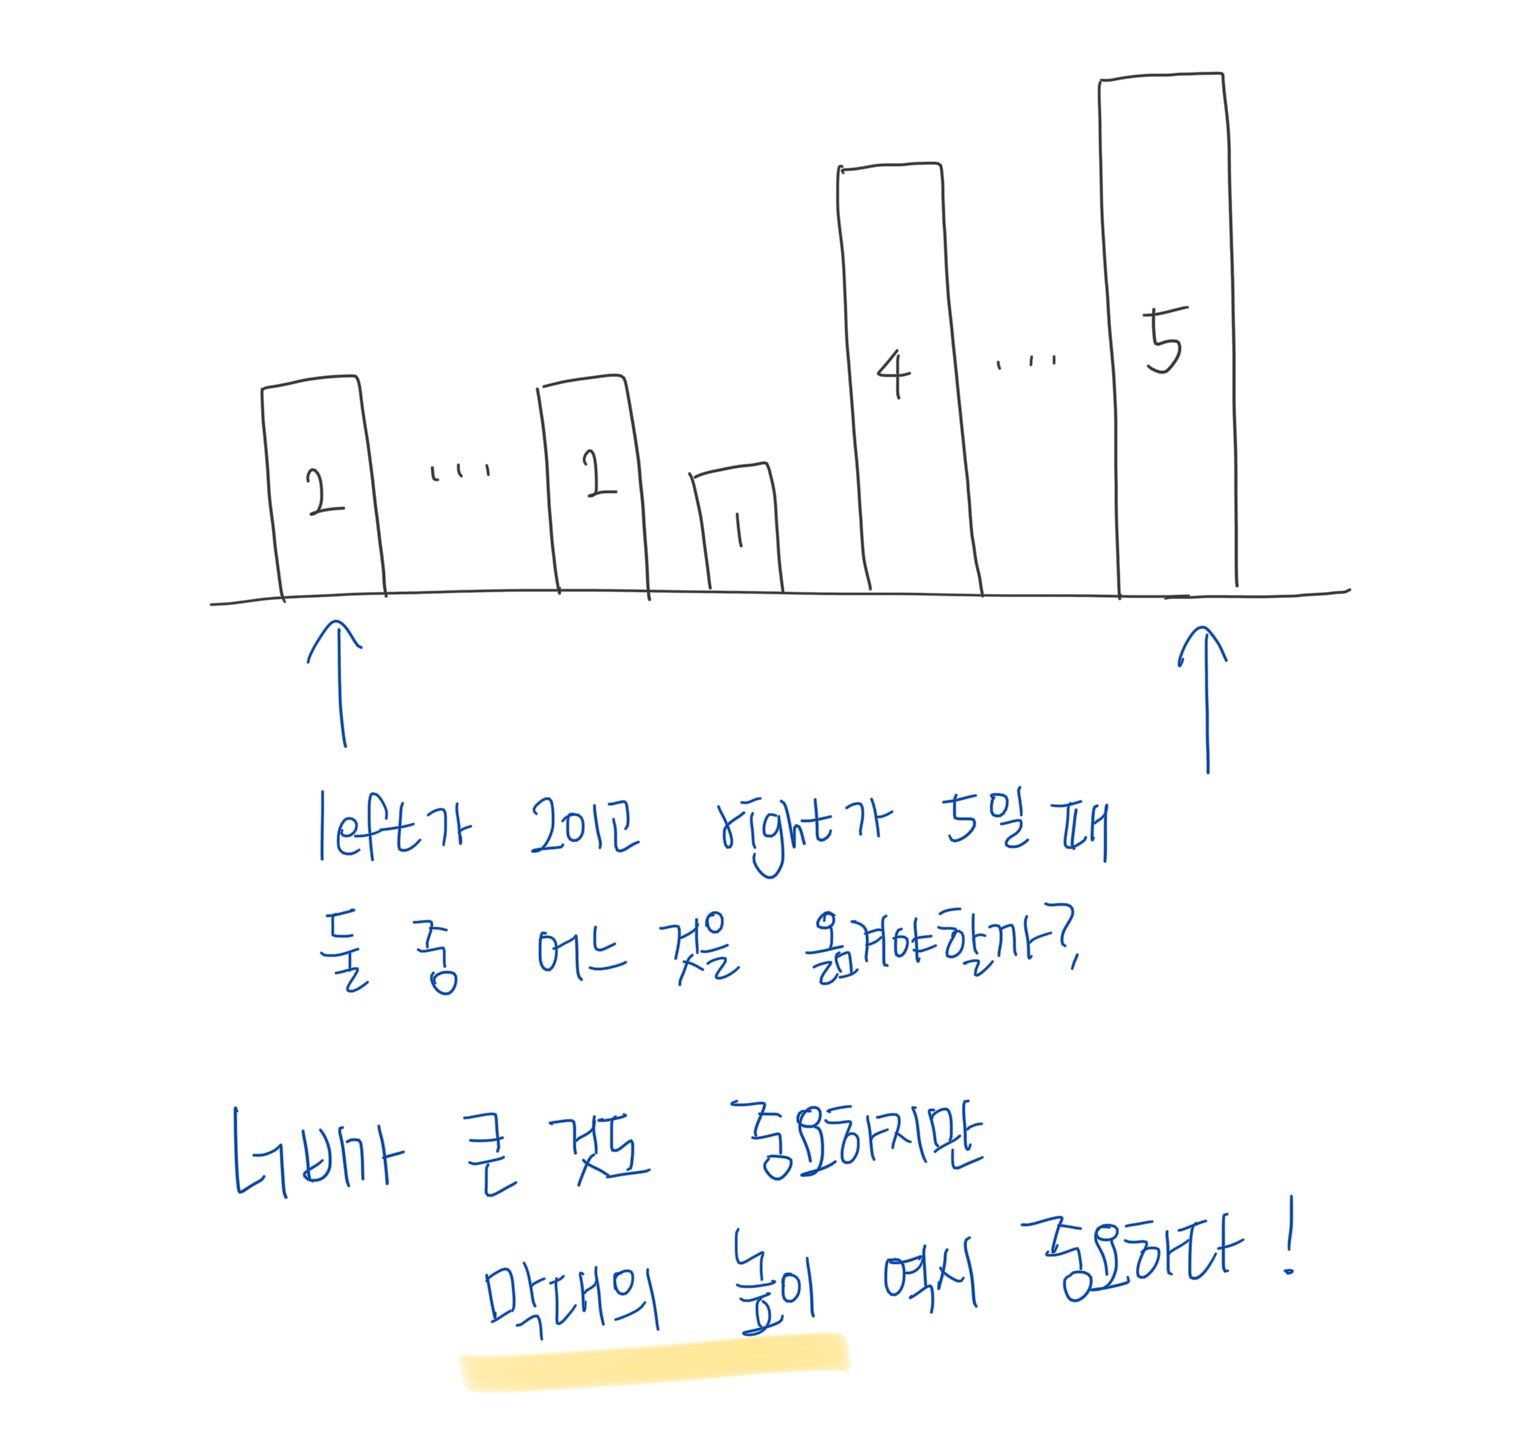 2 ... 2 1 4 ... 5
left가 2이고 right가 5일 때
둘 중 어느 것을 옮겨야할까?
너비가 큰 것도 중요하지만
막대의 높이 역시 중요하다!